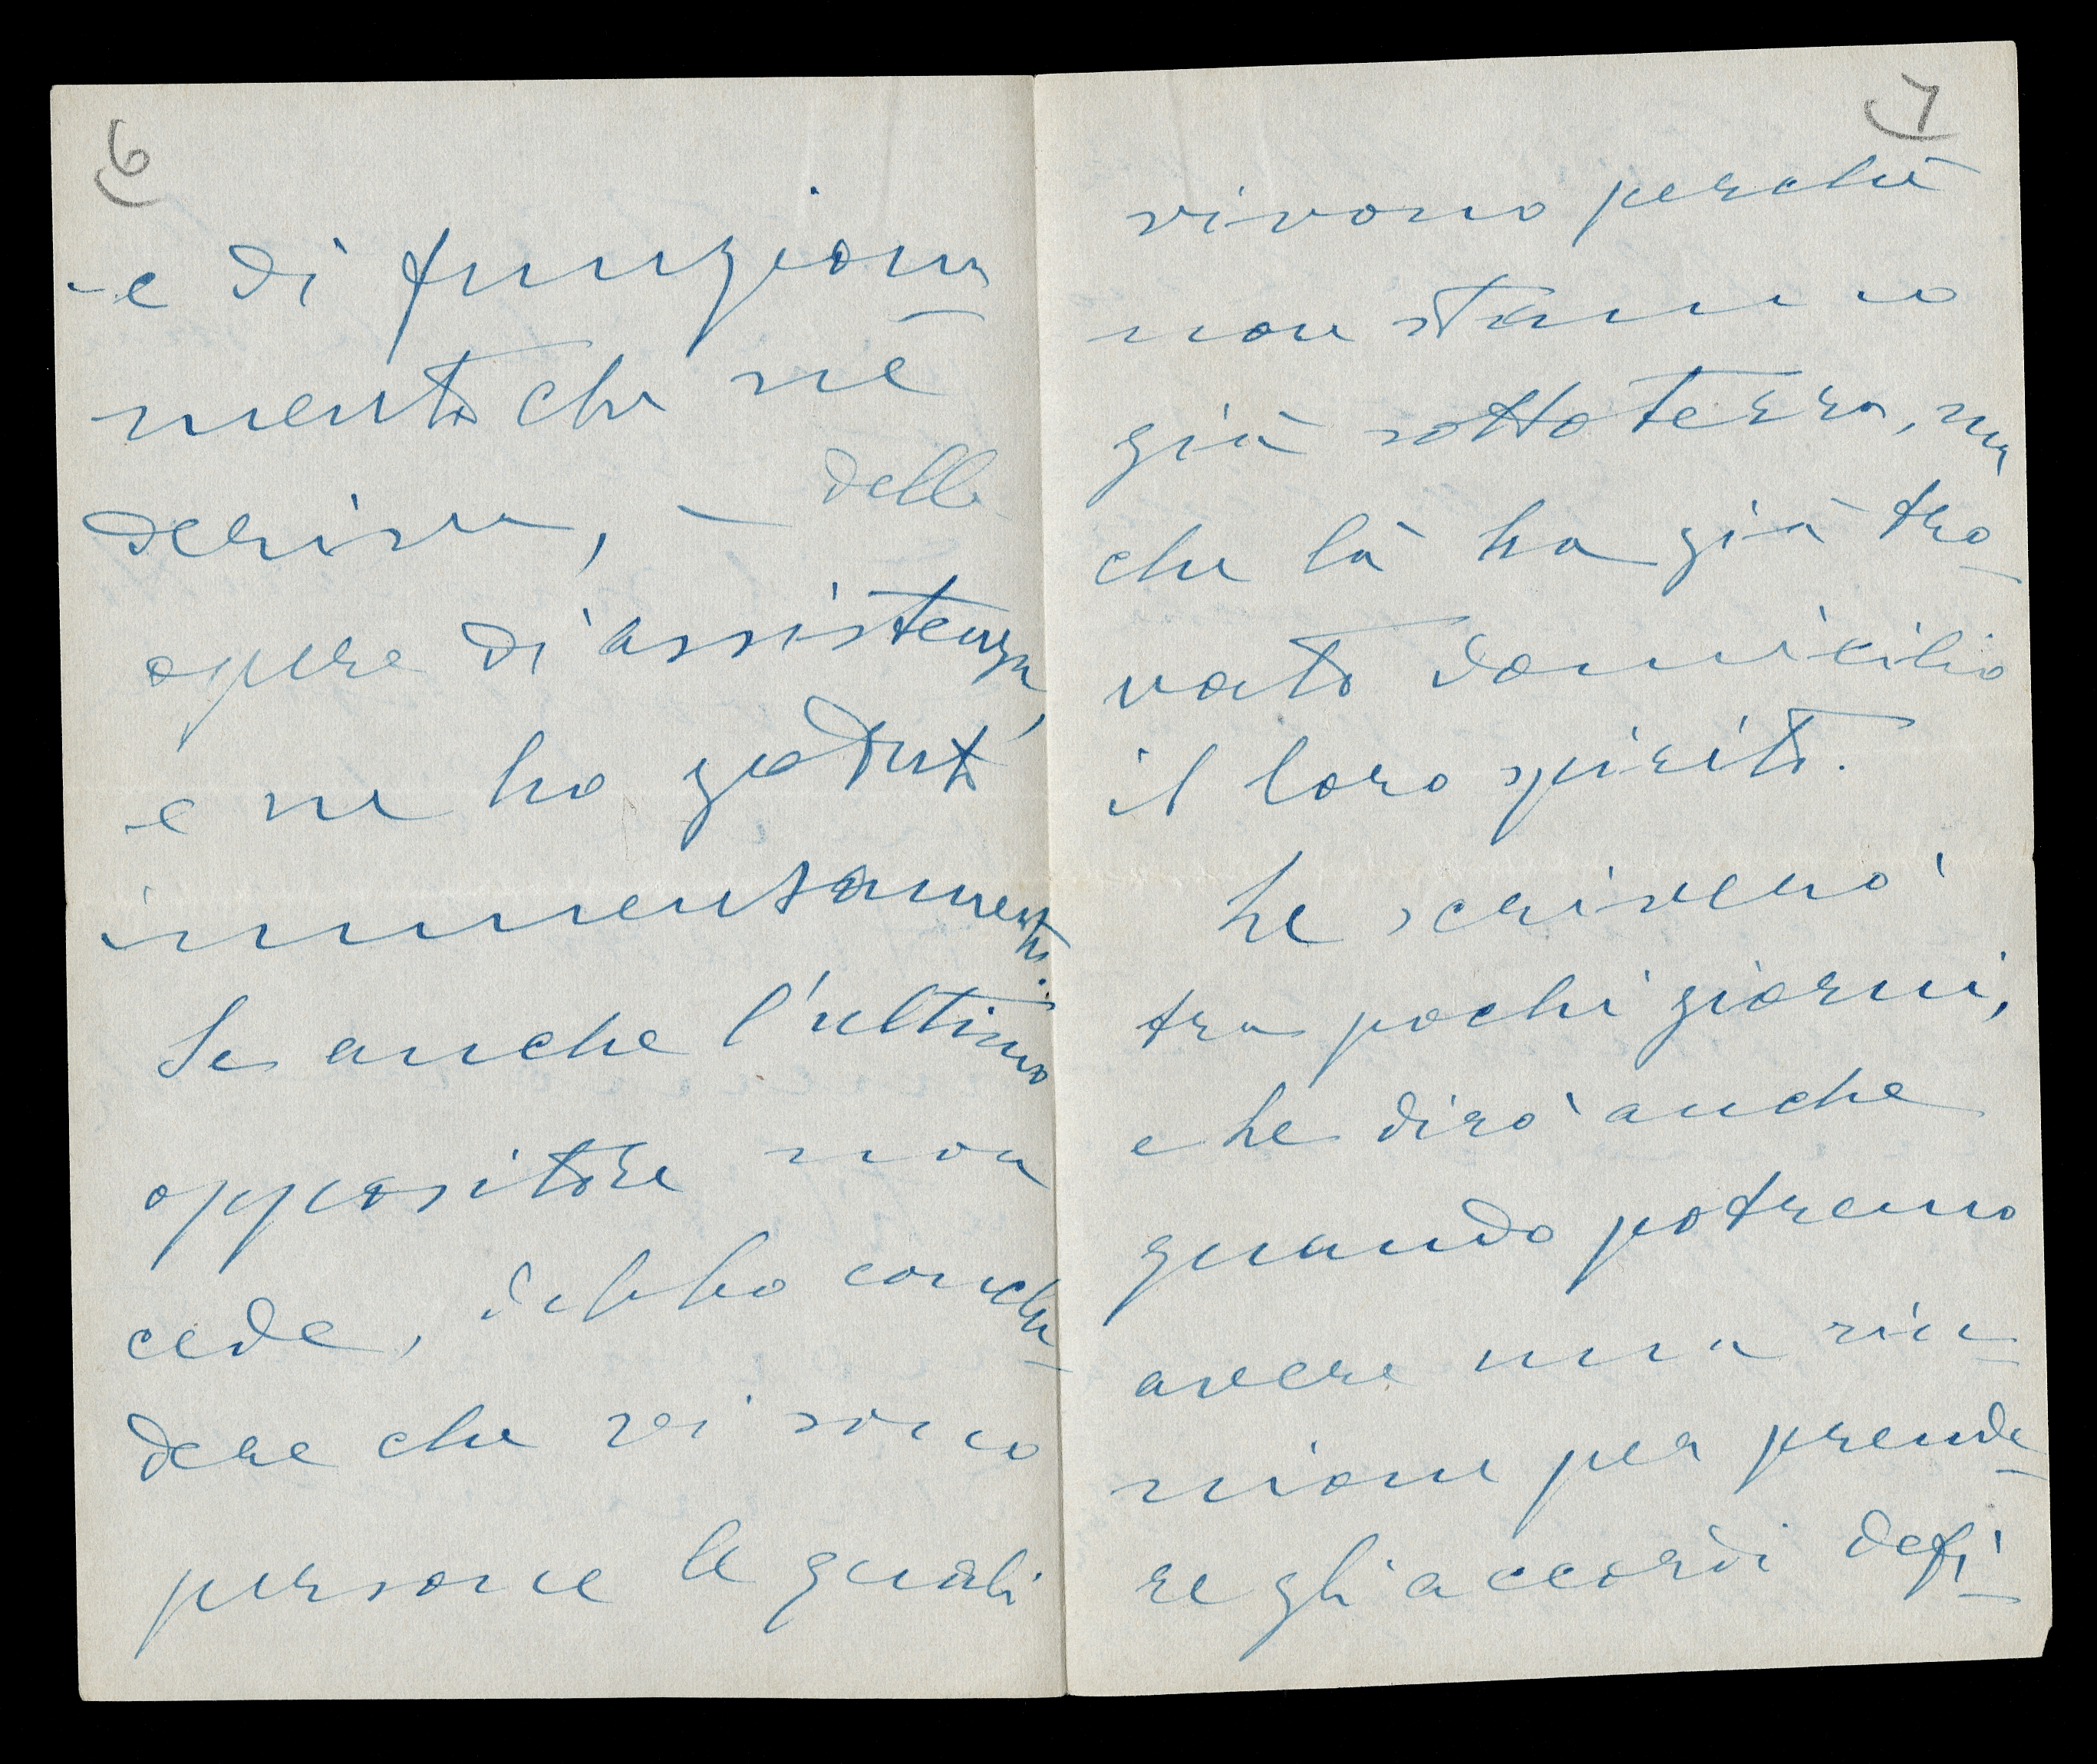 6
e di funziona
mento che ne
deriva, – delle
opere di assistenza,
e ne ho goduto
immensamente.
Se anche l'ultimo
oppositore non
cede, debbo conclu-
dere che vi sono
persone le quali
7
vivono perchè
non stanno
già sotto terra, ma
che là ha già tro-
vato domicilio
il loro spirito.
Le scriverò
tra pochi giorni,
e Le dirò anche
quando potremo
avere una riu-
nione per prende-
re gli accordi defi-